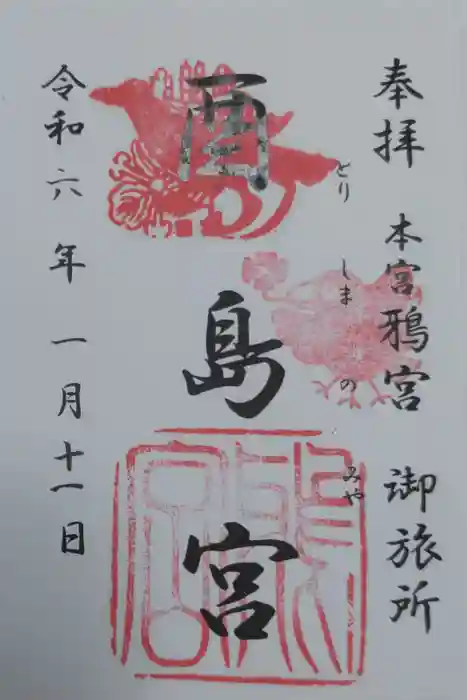 奉拝 本宮鴉宮 御旅所
酉島宮
とりしまのみや
令和六年 一月十一日